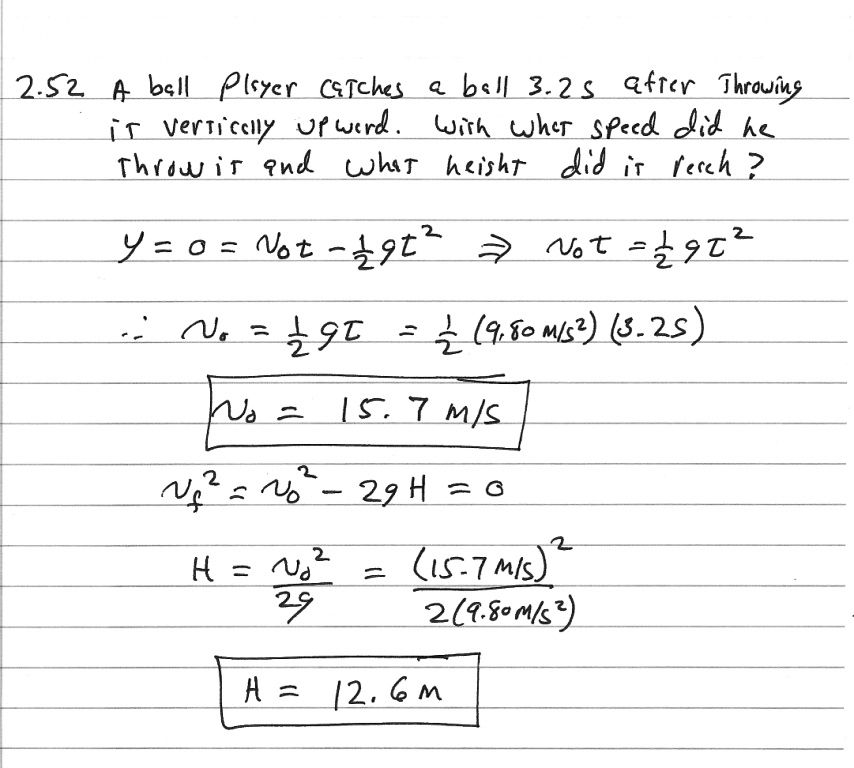 2.52 A ball player catches a ball 3.2 s after Throwing
it vertically upward. With what speed did he
Throw it and what height did it reach?
y = 0 = v₀t - ½gt² ⇒ v₀t = ½gt²
∴ v₀ = ½gt = ½ (9.80 m/s²) (3.2s)
v₀ = 15.7 m/s
v_f² = v₀² - 2gH = 0
H = v₀²/2g = (15.7 m/s)²/2(9.80 m/s²)
H = 12.6 m